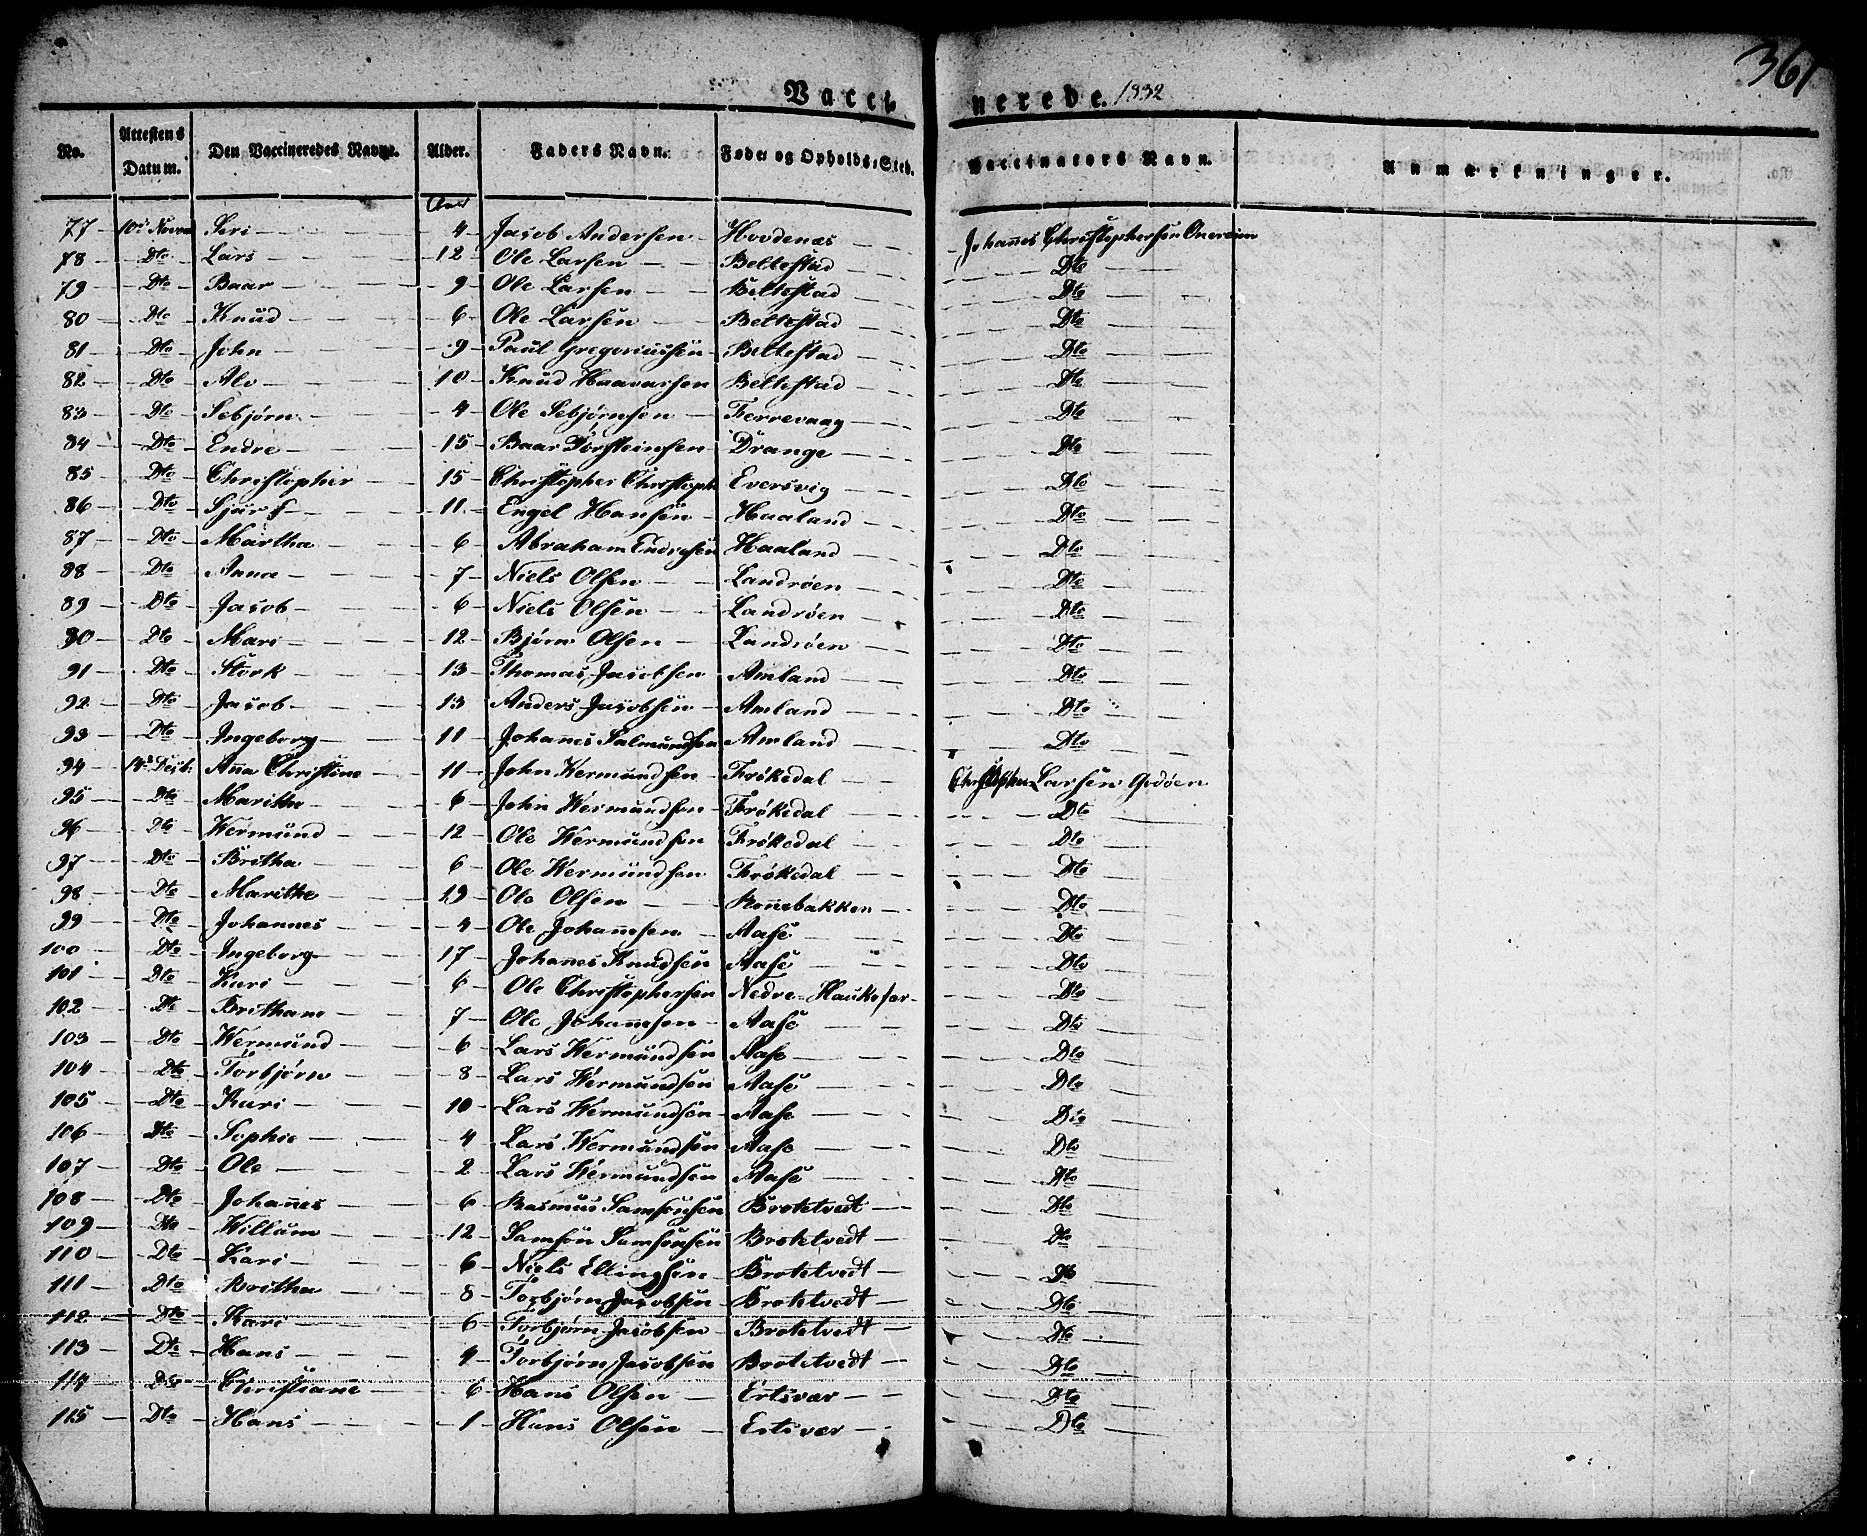 361
Vaccinerede. 1832
No. Attestens Datum. Den Vaccineredes Navne. Alder. Faders Navn. Føde- og Opholds-Sted. Vaccinators Navn. Anmærkninger.
Aar
77 10de Novem Siri 4 Jacob Andersen Hovdenæs Johannes Christophersen Onereim
78 Dto Lars 12 Ole Larsen Beltestad Dto
79 Dto Baar 9 Ole Larsen Beltestad Dto
80 Dto Knud 6 Ole Larsen Beltestad Dto
81 Dto John 9 Paul Gregoriussen Beltestad Dto
82 Dto Alv 10 Knud Haavarsen Beltestad Dto
83 Dto Sebjørn 4 Ole Sebjørnsen Førrevaag Dto
84 Dto Endre 15 Baar Torsteinsen Drange Dto
85 Dto Christopher 15 Christopher Christoph. Eversvig Dto
86 Dto 11 Engel Hansen Haaland Dto
87 Dto Martha 6 Abraham Endresen Haaland Dto
88 Dto Anna 7 Niels Olsen Landrøen Dto
89 Dto Jacob 6 Niels Olsen Landrøen Dto
90 Dto Mari 12 Bjørn Olsen Landrøen Dto
91 Dto Stork 13 Thomas Jacobsen Amland Dto
92 Dto Jacob 13 Anders Jacobsen Amland Dto
93 Dto Ingeborg 11 Johannes Salmundsen Amland Dto
94 14de Decb. Anna Christine 11 John Wermundsen Frøkedal Christopher Larsen Gedøen
95 Dto Marithe 6 John Wermundsen Frøkedal Dto
96 Dto Wermund 12 Ole Wermundsen Frøkedal Dto
97 Dto Britha 6 Ole Wermundsen Frøkedal Dto
98 Dto Marithe 19 Ole Olsen Rønnebakken Dto
99 Dto Johannes 4 Ole Johannsen Aase Dto
100 Dto Ingeborg 17 Johannes Knudsen Aase Dto
101 Dto Kari 6 Ole Christophersen Nedre-Haukeser Dto
102 Dto Brithane 7 Ole Johannsen Aase Dto
103 Dto Wermund 6 Lars Wermundsen Aase Dto
104 Dto Torbjørn 8 Lars Wermundsen Aase Dto
105 Dto Kari 10 Lars Wermundsen Aase Dto
106 Dto Sophie 4 Lars Wermundsen Aase Dto
107 Dto Ole 2 Lars Wermundsen Aase Dto
108 Dto Johannes 6 Rasmus Samsonsen Brotetvedt Dto
109 Dto Willum 12 Samson Samsonsen Brotetvedt Dto
110 Dto Kari 6 Niels Ellingsen Brotetvedt Dto
111 Dto Britha 8 Torbjørn Jacobsen Brotetvedt Dto
112 Dto Kari 6 Torbjørn Jacobsen Brotetvedt Dto
113 Dto Hans 4 Torbjørn Jacobsen Brotetvedt Dto
114 Dto Christiane 6 Hans Olsen Ertsvær Dto
115 Dto Hans 1 Hans Olsen Ertsvær Dto